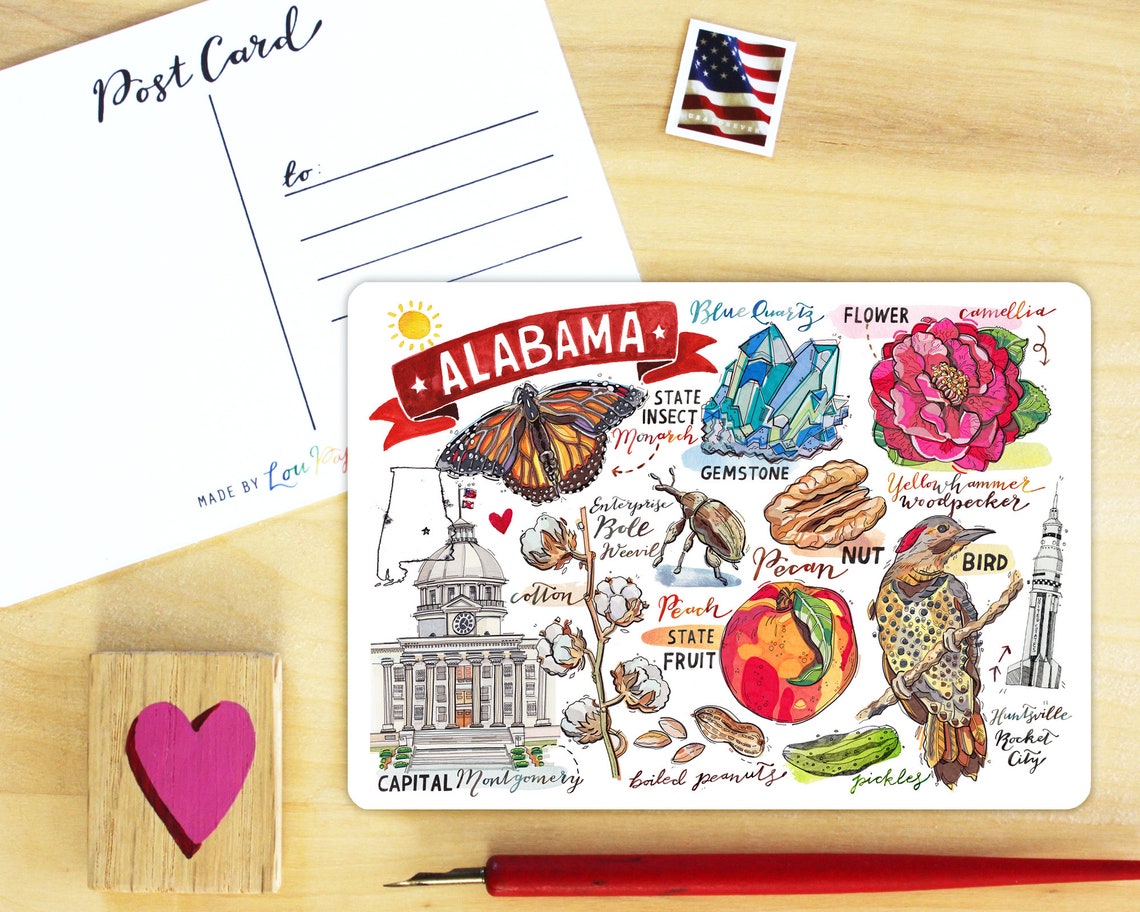 Post Card
to:
MADE BY Lou
USA FOREVER
ALABAMA
Blue Quartz
FLOWER
camellia
STATE
INSECT
Monarch
GEMSTONE
Enterprise
Boll
Weevil
Yellowhammer
woodpecker
Pecan
NUT
BIRD
cotton
Peach
STATE
FRUIT
Huntsville
Rocket
City
CAPITAL Montgomery
boiled peanuts
pickles